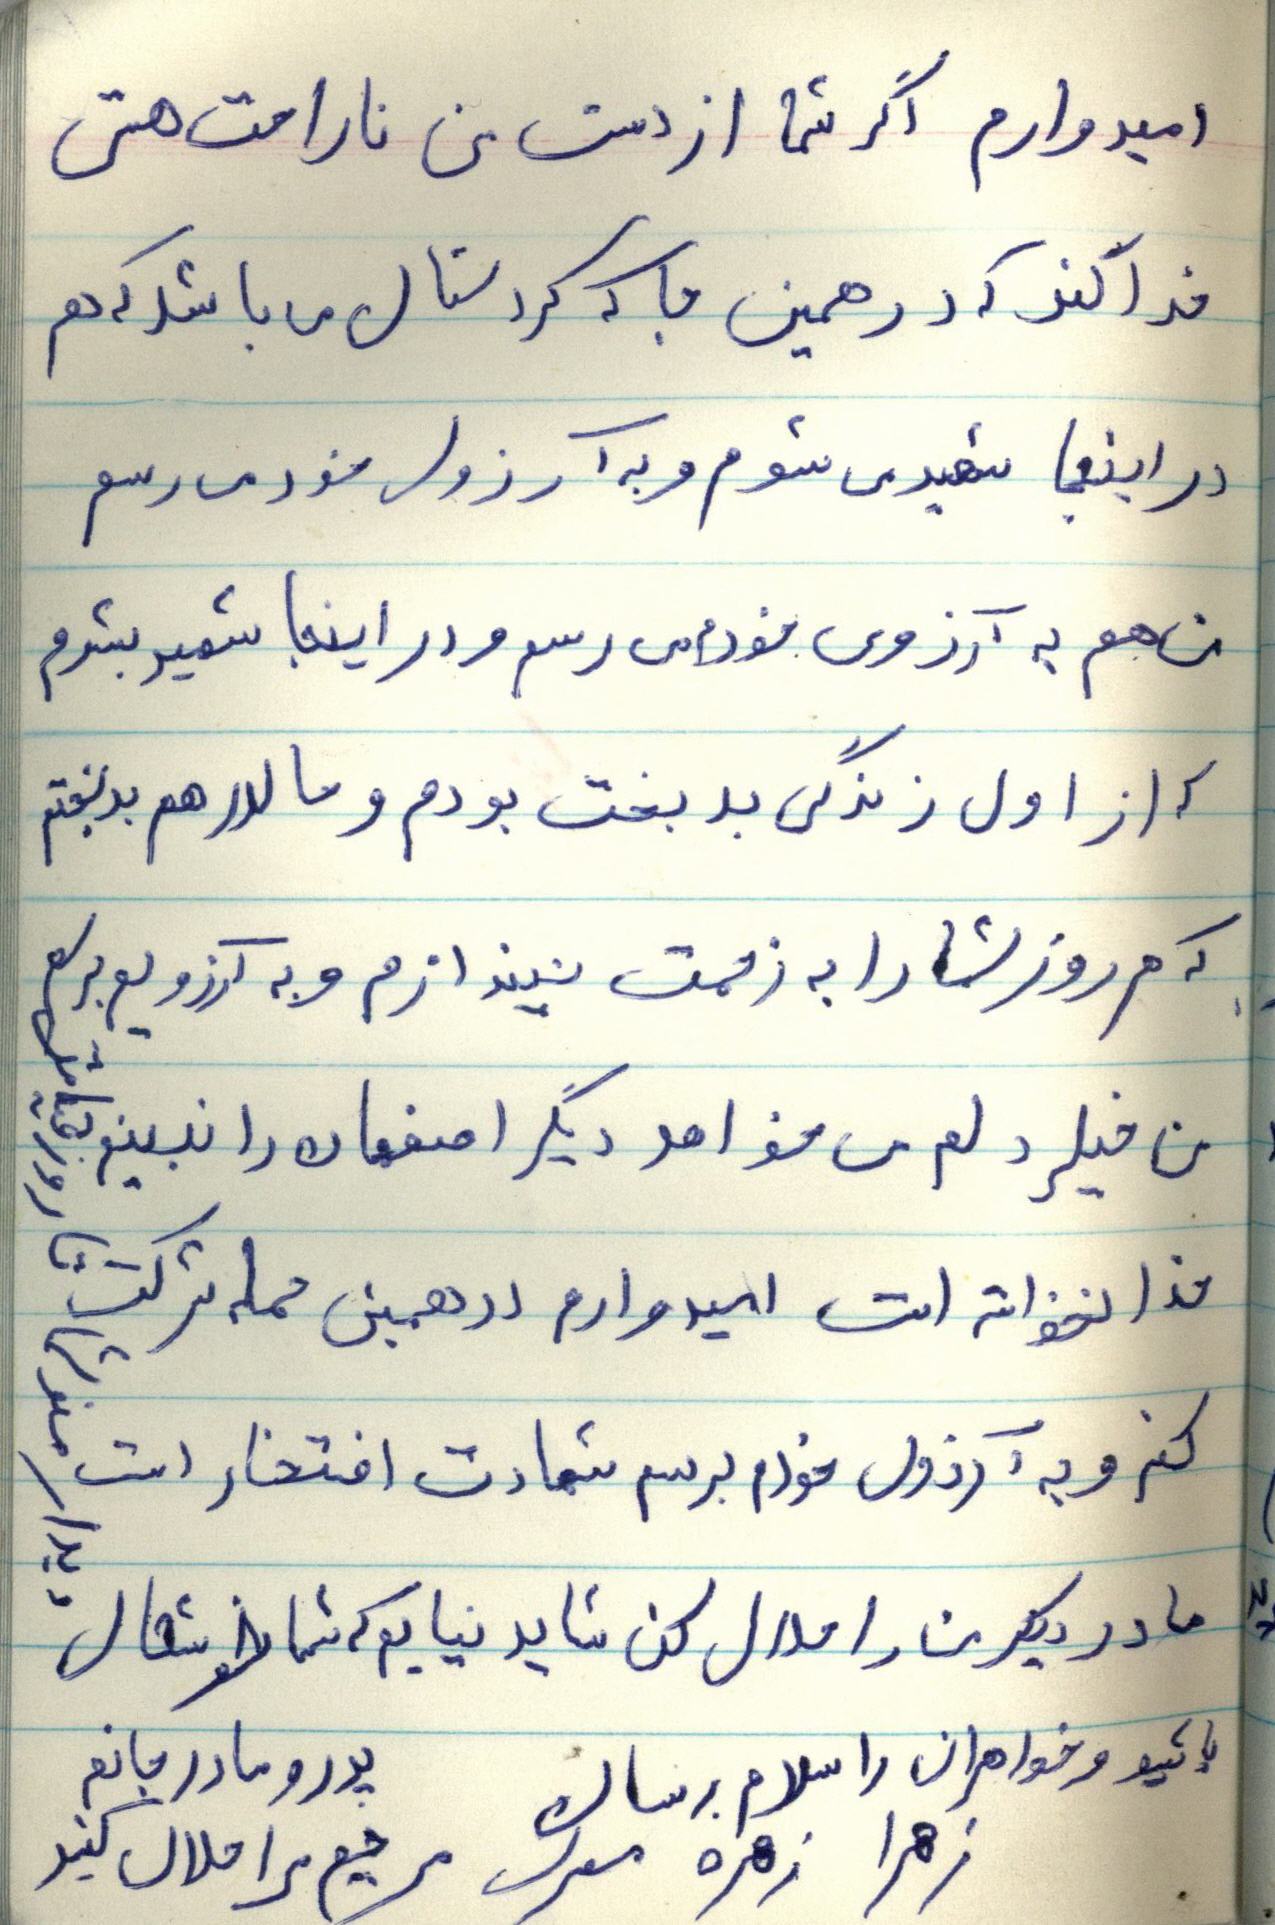 امیدوارم اگر شما از دست من ناراحت هستی
خدا کند که در همین جا که کردستان می باشد که هم
در اینجا شهید می شوم و به آرزوی خود می رسم
من هم به آرزوی خودم می رسم و در اینجا شهید بشوم
که از اول زندگی بدبخت بودم و حالا هم بدبختم
که هر روز شما را به زحمت نیندازم و به آرزویم برسم
من خیلی دلم می خواهد دیگر اصفهان را نبینم
خدا نخواسته است امیدوارم در همین حمله شرکت
کنم و به آرزوی خودم برسم شهادت افتخار است
مادر دیگر من را حلال کن شاید نیایم که شما خوشحال
باشید و خواهران را سلام برسان
زهرا زهره
پدر و مادر جانم
مرا حلال کنید
دیدار